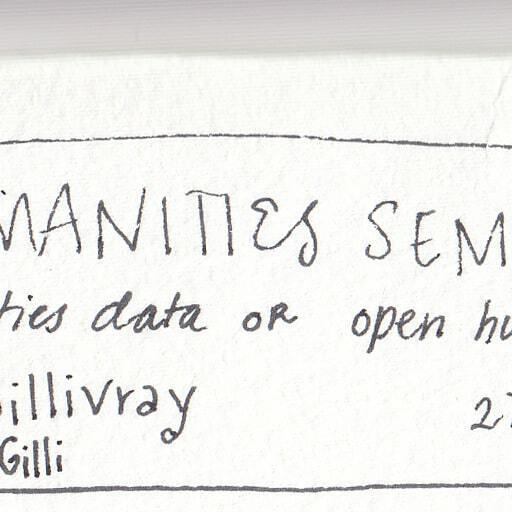 MANITIES SEM
ties data OR open hu
illivray 27
Gilli